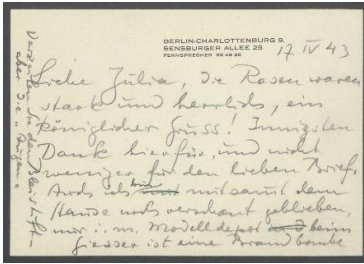 BERLIN-CHARLOTTENBURG 9,
SENSBURGER ALLEE 25
FERNSPRECHER 99 48 25
17 IV 43
Liebe Julia, die Rosen waren
stark und herrlich, ein
königlicher Gruss! Innigsten
Dank hierfür, und nicht
weniger für den lieben Brief.
Auch ich bin mitsamt dem
Hause noch verschont geblieben,
nur i. m. Modelldepot beim
Giesser ist eine Brandbombe
Verzeihen Sie den Bleistift –
aber die „Augen“